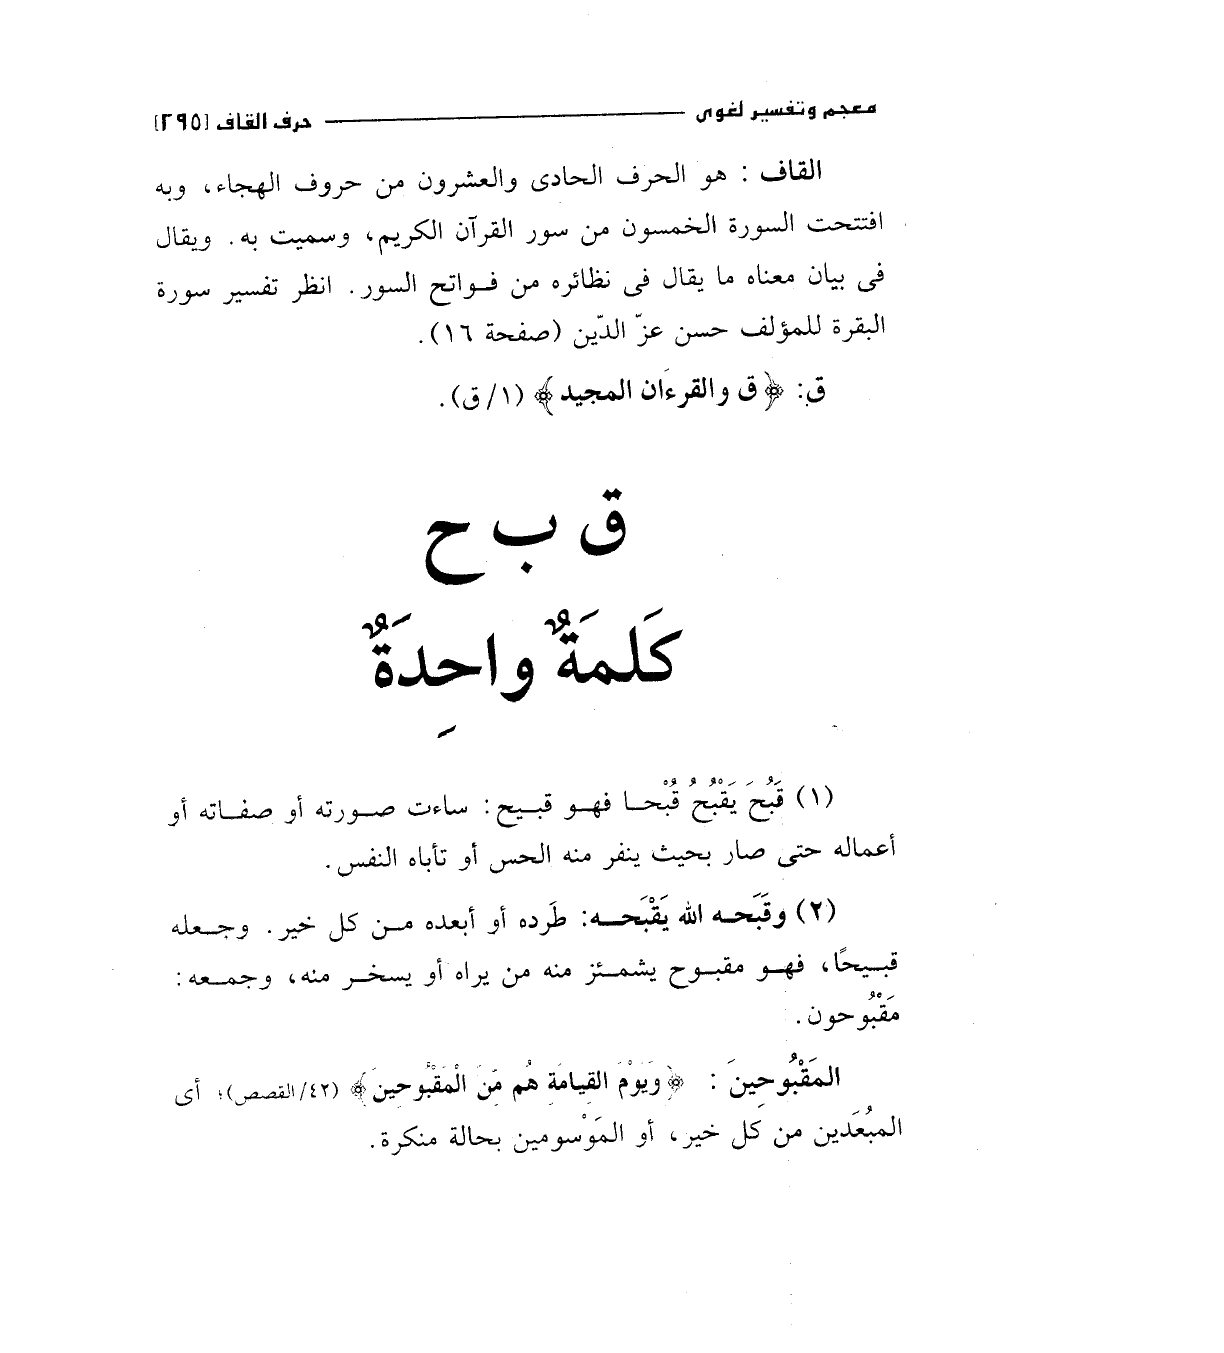 معجم وتفسير لغوى
حرف القاف [٢٩٥]
القاف : هو الحرف الحادى والعشرون من حروف الهجاء، وبه
افتتحت السورة الخمسون من سور القرآن الكريم، وسميت به. ويقال
فى بيان معناه ما يقال فى نظائره من فواتح السور. انظر تفسير سورة
البقرة للمؤلف حسن عزّ الدّين (صفحة ١٦).
ق: ﴿ق والقرءان المجيد﴾ (١/ق).
ق ب ح
كَلمَةٌ واحِدَةٌ
(١) قَبُحَ يَقْبُحُ قُبْحا فهو قبيح: ساءت صورته أو صفاته أو
أعماله حتى صار بحيث ينفر منه الحس أو تأباه النفس.
(٢) وقَبَحه الله يَقْبَحه: طَرده أو أبعده من كل خير. وجعله
قبيحًا، فهو مقبوح يشمئز منه من يراه أو يسخر منه، وجمعه:
مَقْبُوحون.
المَقْبُوحِينَ : ﴿وَيَوْمَ القيامَة هُم مّنَ الْمَقْبُوحين﴾ (٤٢/القصص)؛ أى
المبُعَدين من كل خير، أو المَوْسومين بحالة منكرة.